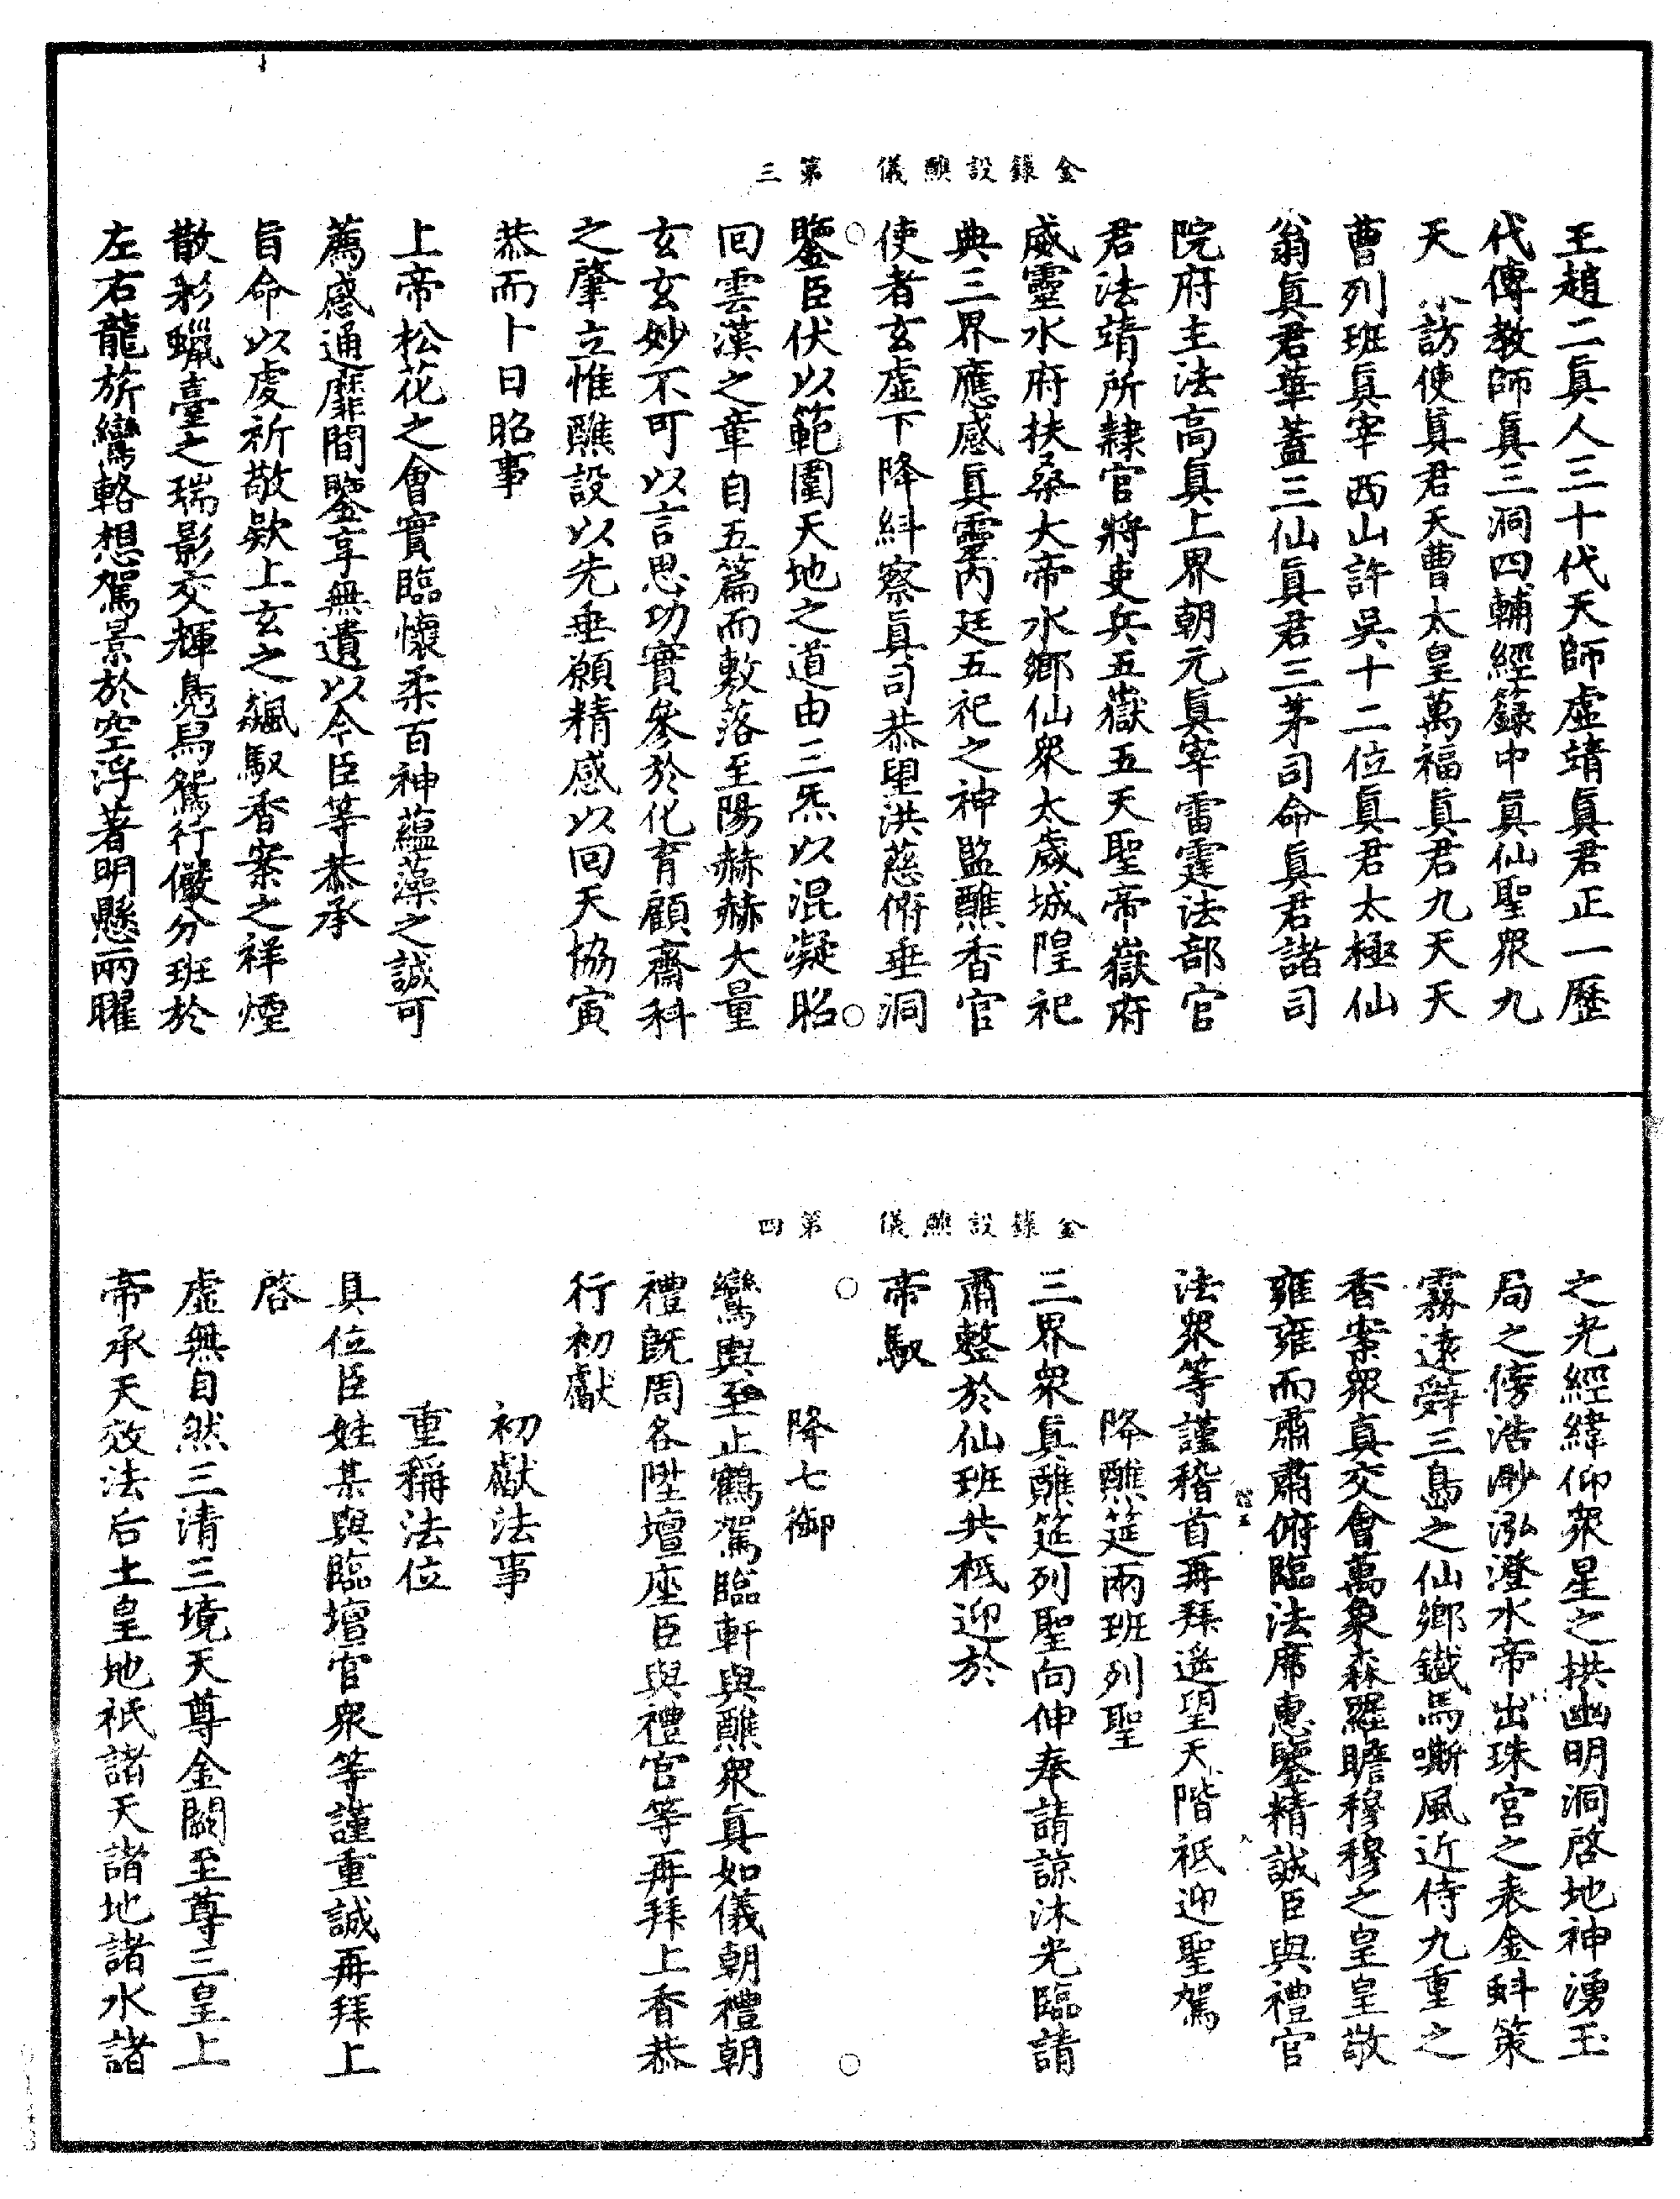 金籙設醮儀 第三
王趙二眞人三十代天師虛靖眞君正一歷
代傳教師眞三洞四輔經籙中眞仙聖衆九
天採訪使眞君天曹太皇萬福眞君九天天
曹列班眞宰西山許吳十二位眞君太極仙
翁眞君華蓋三仙眞君三茅司命眞君諸司
院府主法高眞上界朝元眞宰雷霆法部官
君法靖所隸官將吏兵五嶽五天聖帝嶽府
威靈水府扶桑大帝水鄉仙衆太歲城隍祀
典三界應感眞靈內廷五祀之神監醮香官
使者玄虛下降糾察眞司恭望洪慈俯垂洞
鑒臣伏以範圍天地之道由三炁以混凝昭
回雲漢之章自五篇而敷落至陽赫赫大量
玄玄妙不可以言思功實參於化育顧齋科
之肇立惟醮設以先垂願精感以回天協寅
恭而卜日昭事
上帝松花之會實臨懷柔百神蘊藻之誠可
薦感通靡間鑒享無遺以今臣等恭承
旨命以虔祈敬欵上玄之飆馭香案之祥煙
散彩蠟臺之瑞影交輝鳧舄鴛行儼分班於
左右龍旂鸞輅想駕景於空浮著明懸兩曜
金籙設醮儀 第四
之光經緯仰衆星之拱幽明洞啓地神湧玉
局之傍浩渺泓澄水帝出珠宮之表金蚪策
霧遠辭三島之仙鄉鐵馬嘶風近侍九重之
香案衆真交會萬象森羅瞻穆穆之皇皇敬
雍雍而肅肅俯臨法席惠鑒精誠臣與禮官
法衆等謹稽首再拜遙望天階祇迎聖駕
降醮筵兩班列聖
三界衆眞醮筵列聖向伸奉請諒沐光臨請
肅整於仙班共柢迎於
帝馭
降七御
鸞輿至止鶴駕臨軒與醮衆眞如儀朝禮朝
禮旣周各陞壇座臣與禮官等再拜上香恭
行初獻
初獻法事
重稱法位
具位臣姓某與臨壇官衆等謹重誠再拜上
啓
虛無自然三清三境天尊金闕至尊三皇上
帝承天效法后土皇地祇諸天諸地諸水諸